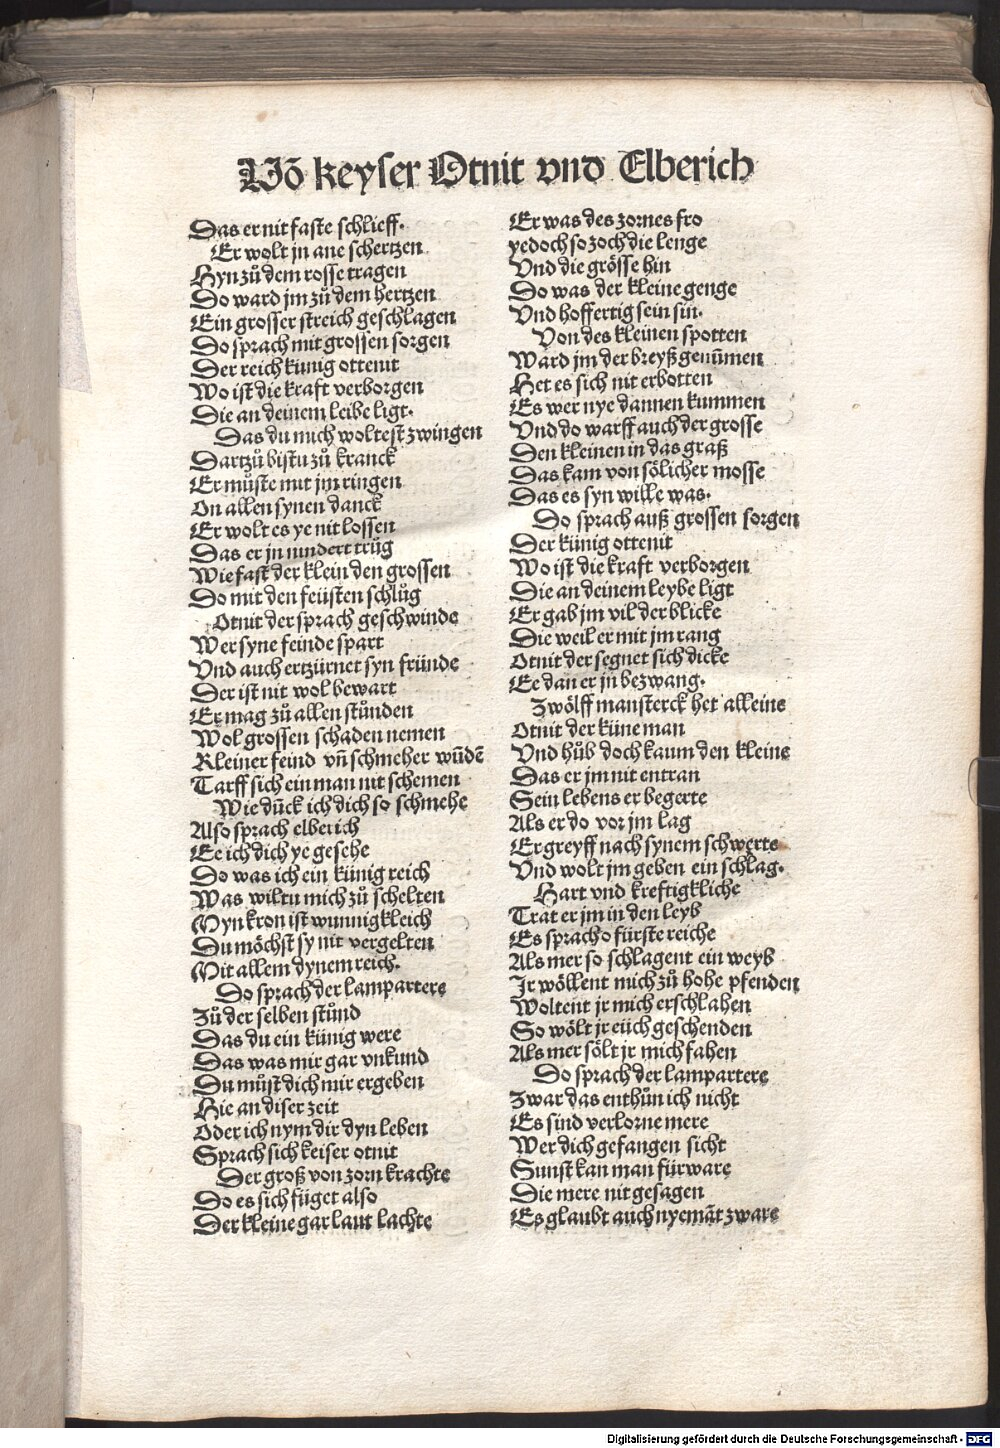 Vō keyser Otnit vnd Elberich
Das er nit faste schlieff.
Er wolt jn ane schertzen
Hyn zů dem rosse tragen
Do ward jm zů dem hertzen
Ein grosser streich geschlagen
Do sprach mit grossen sorgen
Der reich künig ottenit
Wo ist die kraft verborgen
Die an deinem leibe ligt.
Das du mich woltest zwingen
Dartzů bistu zů kranck
Er můste mit jm ringen
On allen synen danck
Er wolt es ye nit lossen
Das er jn nindert trůg
Wie fast der klein den grossen
Do mit den feüsten schlůg
Otnit der sprach geschwinde
Wer syne feinde spart
Vnd auch ertzürnet syn fründe
Der ist nit wol bewart
Er mag zů allen stůnden
Wol grossen schaden nemen
Kleiner feind vñ schmeher wūdē
Tarff sich ein man nit schemen
Wie dūck ich dich so schmehe
Also sprach elberich
Ee ich dich ye gesehe
Do was ich ein künig reich
Was wiltu mich zů schelten
Myn kron ist wunnigkleich
Du möchst sy nit vergelten
Mit allem dynem reich.
Do sprach der lampartere
Zů der selben stůnd
Das du ein künig were
Das was mir gar vnkund
Du můst dich mir ergeben
Hie an diser zeit
Oder ich nym dir dyn leben
Sprach sich keiser otnit
Der groß von zorn krachte
Do es sich füget also
Der kleine gar laut lachte
Er was des zornes fro
yedoch so zoch die lenge
Vnd die grösse hin
Do was der kleine genge
Vnd hoffertig sein sin.
Von des kleinen spotten
Ward jm der breyß genūmen
Het es sich nit erbotten
Es wer nye dannen kummen
Vnd do warff auch der grosse
Den kleinen in das graß
Das kam von sölicher mosse
Das es syn wille was.
Do sprach auß grossen sorgen
Der künig ottenit
Wo ist die kraft verborgen
Die an deinem leybe ligt
Er gab jm vil der blicke
Die weil er mit jm rang
Otnit der segnet sich dicke
Ee dan er jn bezwang.
Zwölff mansterck het alleine
Otnit der küne man
Vnd hůb doch kaum den kleine
Das er jm nit entran
Sein lebens er begerte
Als er do vor jm lag
Er greyff nach synem schwerte
Vnd wolt jm geben ein schlag.
Hart vnd kreftigkliche
Trat er jm in den leyb
Es sprach o fürste reiche
Als mer so schlagent ein weyb
Ir wöllent mich zů hohe pfenden
Woltent jr mich erschlahen
So wölt jr eüch geschenden
Als mer sölt jr mich fahen
Do sprach der lampartere
Zwar das enthůn ich nicht
Es sind verlorne mere
Wer dich gefangen sicht
Sunst kan man fürware
Die mere nit gesagen
Es glaubt auch nyemāt zware
Digitalisierung gefördert durch die Deutsche Forschungsgemeinschaft - DFG